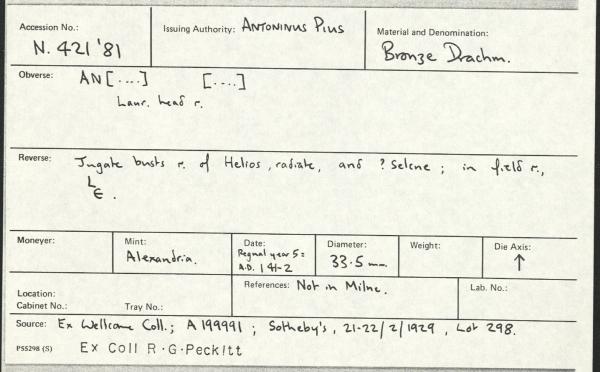 Accession No.:
N. 421 '81
Issuing Authority: ANTONINUS PIUS
Material and Denomination:
Bronze Drachm.
Obverse: AN[....] [....]
Laur. head r.
Reverse: Jugate busts r. of Helios, radiate, and ? Selene ; in field r.,
L
E .
Moneyer:
Mint:
Alexandria.
Date:
Regnal year 5 =
A.D. 141-2
Diameter:
33.5 mm.
Weight:
Die Axis:
↑
Location:
Cabinet No.: Tray No.:
References: Not in Milne.
Lab. No.:
Source: Ex Wellcome Coll.; A 199991 ; Sotheby's, 21-22/2/1929, Lot 298.
PS5298 (S) Ex Coll R·G·Peckitt